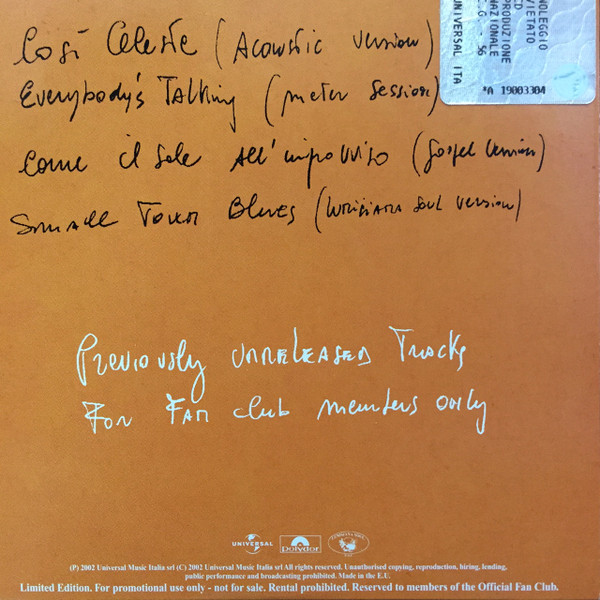 Così Celeste (Acoustic version)
Everybody's Talking (meter session)
Come il sole all'improvviso (Gospel version)
Small Town Blues (Lunisiana Soul version)
Previously unreleased Tracks
For Fan club members only
NOLEGGIO
VIETATO
CD
RIPRODUZIONE
NAZIONALE
S6
UNIVERSAL ITA
*A 19003304
UNIVERSAL
Polydor
(P) 2002 Universal Music Italia srl (C) 2002 Universal Music Italia srl All rights reserved. Unauthorised copying, reproduction, hiring, lending,
public performance and broadcasting prohibited. Made in the E.U.
Limited Edition. For promotional use only - not for sale. Rental prohibited. Reserved to members of the Official Fan Club.